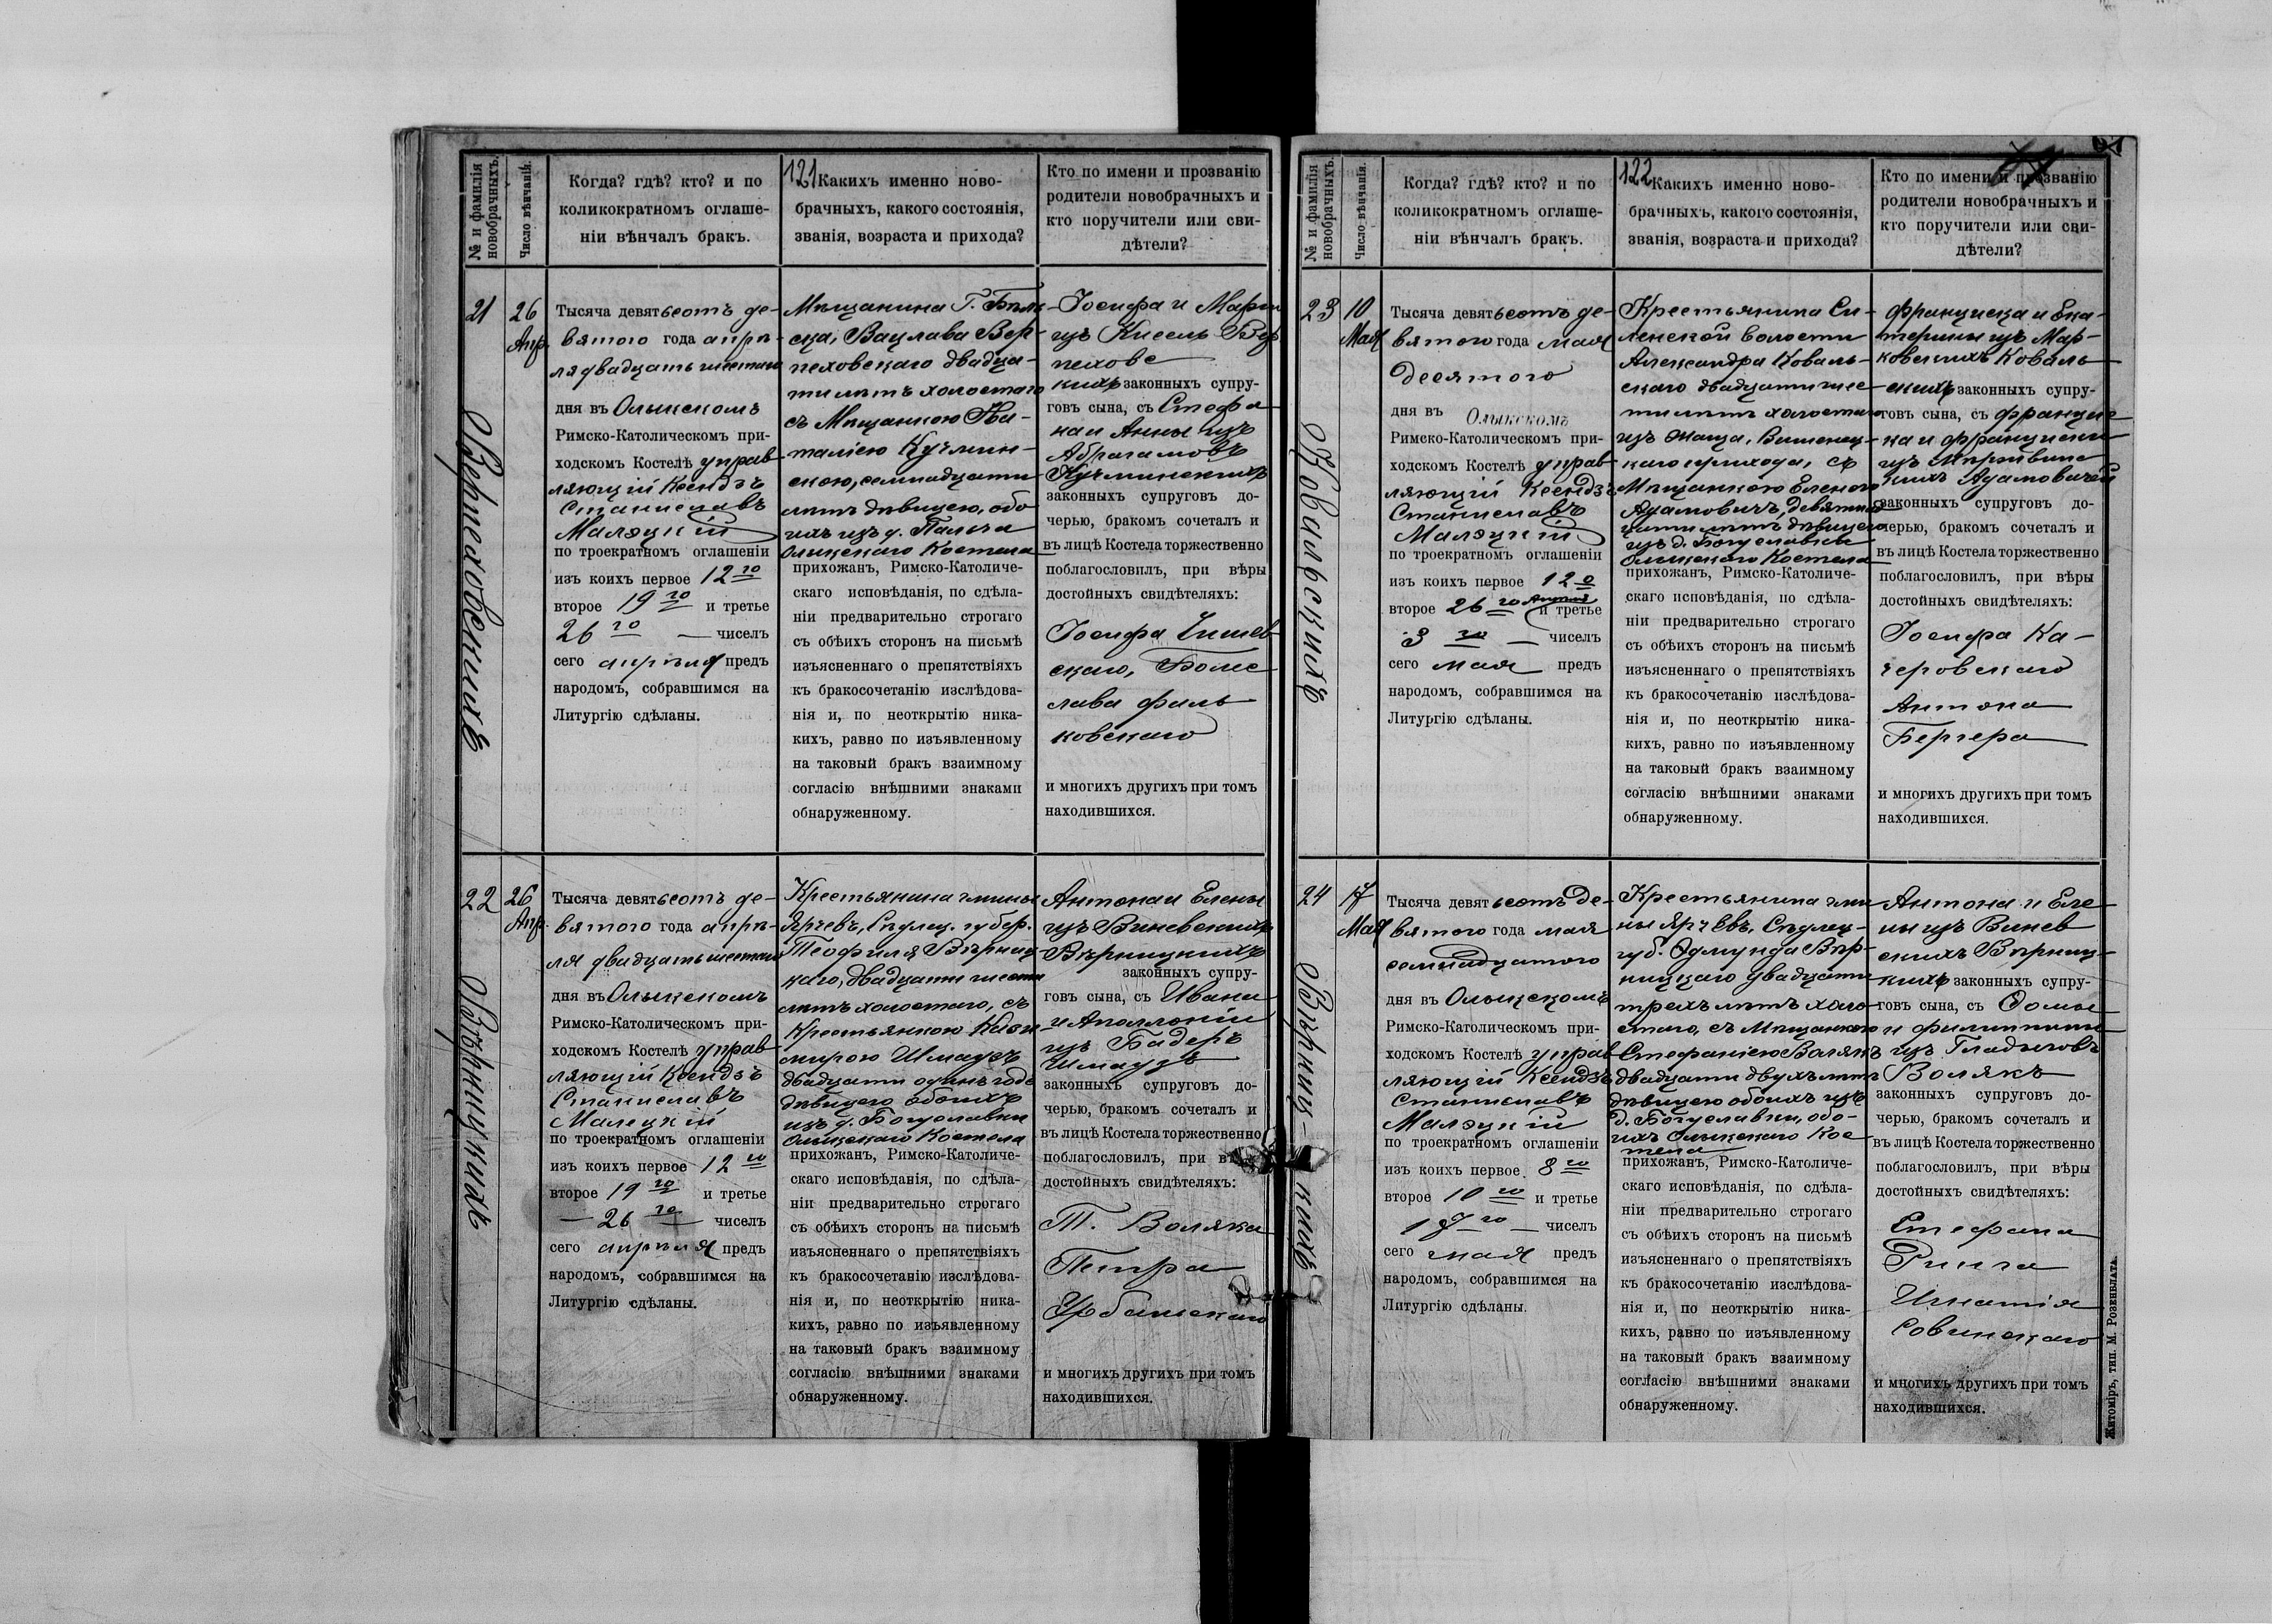 № и фамилія новобрачныхъ.
Число вѣнчанія.
Когда? гдѣ? кто? и по
коликократномъ оглаше-
ніи вѣнчалъ бракъ.
121 Какихъ именно ново-
брачныхъ, какого состоянія,
званія, возраста и прихода?
Кто по имени и прозванію
родители новобрачныхъ и
кто поручители или сви-
дѣтели?
21
Верпеховскихъ
26
Апр.
Тысяча девятьсотъ де-
вятого года апрѣ-
ля двадцать шестаго
дня въ Олыкскомъ
Римско-Католическомъ при-
ходскомъ Костелѣ управ
ляющій Ксендзъ
Станиславъ
Малэцкій
по троекратномъ оглашеніи
изъ коихъ первое 12го
второе 19го и третье
26го — чиселъ
сего апрѣля предъ
народомъ, собравшимся на
Литургію сдѣланы.
Мѣщанина Г. Бѣль
ска, Вацлава Вер-
пеховскаго двадца-
ти лѣтъ холостаго
съ Мѣщанкою На-
таліею Кучмин-
скою, семнадцати
лѣтъ дѣвицею, обо
ихъ изъ д. Пальча
Олыкскаго Костела
прихожанъ, Римско-Католиче-
скаго исповѣданія, по сдѣла-
ніи предварительно строгаго
съ обѣихъ сторонъ на письмѣ
изъясненнаго о препятствіяхъ
къ бракосочетанію изслѣдова-
нія и, по неоткрытію ника-
кихъ, равно по изъявленному
на таковый бракъ взаимному
согласію внѣшними знаками
обнаруженному.
Іосифа и Маріи
изъ Кисель Вер
пеховс
кихъ законныхъ супру-
говъ сына, съ Стефа
на и Анны изъ
Абрагамовъ
Кучминскихъ
законныхъ супруговъ до-
черью, бракомъ сочеталъ и
въ лицѣ Костела торжественно
поблагословилъ, при вѣры
достойныхъ свидѣтеляхъ:
Іосифа
скаго, Болес
лава Фаль
ковскаго
и многихъ другихъ при томъ
находившихся.
22
Вѣрницкихъ
26
Апр.
Тысяча девятьсотъ де-
вятого года апрѣ-
ля двадцать шестаго
дня въ Олыкскомъ
Римско-Католическомъ при-
ходскомъ Костелѣ управ
ляющій Ксендзъ
Станиславъ
Малецкій
по троекратномъ оглашеніи
изъ коихъ первое 12го
второе 19го и третье
— 26го — чиселъ
сего апрѣля предъ
народомъ, собравшимся на
Литургію сдѣланы.
Крестьянина гмины
Ярчевъ, Сѣдлец. губер.
Теофиля Вѣрниц
каго, двадцати шести
лѣтъ холостаго, съ
Крестьянкою Кази
мирою Шмаузъ
двадцати одинъ годъ
дѣвицею обоихъ
изъ д. Богуславки
Олыкскаго Костела
прихожанъ, Римско-Католиче-
скаго исповѣданія, по сдѣла-
ніи предварительно строгаго
съ обѣихъ сторонъ на письмѣ
изъясненнаго о препятствіяхъ
къ бракосочетанію изслѣдова-
нія и, по неоткрытію ника-
кихъ, равно по изъявленному
на таковый бракъ взаимному
согласію внѣшними знаками
обнаруженному.
Антона и Елены
изъ Виневскихъ
Вѣрницкихъ
законныхъ супру-
говъ сына, съ Ивана
и Аполлоніи
изъ Бадеръ
Шмаузъ
законныхъ супруговъ до-
черью, бракомъ сочеталъ и
въ лицѣ Костела торжественно
поблагословилъ, при вѣ
достойныхъ свидѣтеляхъ:
Т. Воляка
Петра
Урбанскаго
и многихъ другихъ при томъ
находившихся.
№ и фамилія новобрачныхъ.
Число вѣнчанія.
Когда? гдѣ? кто? и по
коликократномъ оглаше-
ніи вѣнчалъ бракъ.
122 Какихъ именно ново-
брачныхъ, какого состоянія,
званія, возраста и прихода?
Кто по имени и прозванію
родители новобрачныхъ и
кто поручители или сви-
дѣтели?
23
Ковальскихъ
10
Мая
Тысяча девятьсотъ де-
вятого года мая
десятого
дня въ Олыкскомъ
Римско-Католическомъ при-
ходскомъ Костелѣ управ-
ляющій Ксендзъ
Станиславъ
Малэцкій
по троекратномъ оглашеніи
изъ коихъ первое 12о
второе 26го Апрѣля и третье
3го — чиселъ
сего мая предъ
народомъ, собравшимся на
Литургію сдѣланы.
Крестьянина Си-
ленской волости
Александра Коваль-
скаго двадцати шес
ти лѣтъ холостаго
изъ Вишневец-
каго прихода, съ
Мѣщанкою Еленою
Адамовичъ, девятнад
цати лѣтъ дѣвицею
изъ д. Богуславки
Олыкскаго Костела
прихожанъ, Римско-Католиче-
скаго исповѣданія, по сдѣла-
ніи предварительно строгаго
съ обѣихъ сторонъ на письмѣ
изъясненнаго о препятствіяхъ
къ бракосочетанію изслѣдова-
нія и, по неоткрытію ника-
кихъ, равно по изъявленному
на таковый бракъ взаимному
согласію внѣшними знаками
обнаруженному.
Франциска и Ека-
терины изъ Мар-
ковскихъ Коваль
скихъ законныхъ супру-
говъ сына, съ Францис-
ка и Франциски
изъ
кихъ Адамовичей
законныхъ супруговъ до-
черью, бракомъ сочеталъ и
въ лицѣ Костела торжественно
поблагословилъ, при вѣры
достойныхъ свидѣтеляхъ:
Іосифа Ка-
черовскаго
Антона
Бергера
и многихъ другихъ при томъ
находившихся.
24
Вѣрниц-кихъ
17
Мая
Тысяча девятьсотъ де-
вятого года мая
семнадцатого
дня въ Олыкскомъ
Римско-Католическомъ при-
ходскомъ Костелѣ управ
ляющій Ксендзъ
Станиславъ
Малэцкій
по троекратномъ оглашеніи
изъ коихъ первое 8го
второе 10го и третье
17го — чиселъ
сего мая предъ
народомъ, собравшимся на
Литургію сдѣланы.
Крестьянина гми
ны Ярчевъ, Сѣдлец-
губ. Эдмунда Вѣр-
ницкаго двадцати
трехъ лѣтъ холо-
стаго, съ Мѣщанкою
Стефаніею Волякъ
двадцати двухъ лѣтъ
дѣвицею обоихъ изъ
д. Богуславки, обо-
ихъ Олыкскаго Кос
тела
прихожанъ, Римско-Католиче-
скаго исповѣданія, по сдѣла-
ніи предварительно строгаго
съ обѣихъ сторонъ на письмѣ
изъясненнаго о препятствіяхъ
къ бракосочетанію изслѣдова-
нія и, по неоткрытію ника-
кихъ, равно по изъявленному
на таковый бракъ взаимному
согласію внѣшними знаками
обнаруженному.
Антона и Еле
ны изъ Винев
скихъ Вѣрниц-
кихъ законныхъ супру-
говъ сына, съ Фомы
и Филиппины
изъ Гладычовъ
Волякъ
законныхъ супруговъ до-
черью, бракомъ сочеталъ и
въ лицѣ Костела торжественно
поблагословилъ, при вѣры
достойныхъ свидѣтеляхъ:
Стефана
Ринга
Игнатія
Совинскаго
и многихъ другихъ при томъ
находившихся.
Житоміръ, тип. М. Розенблата.